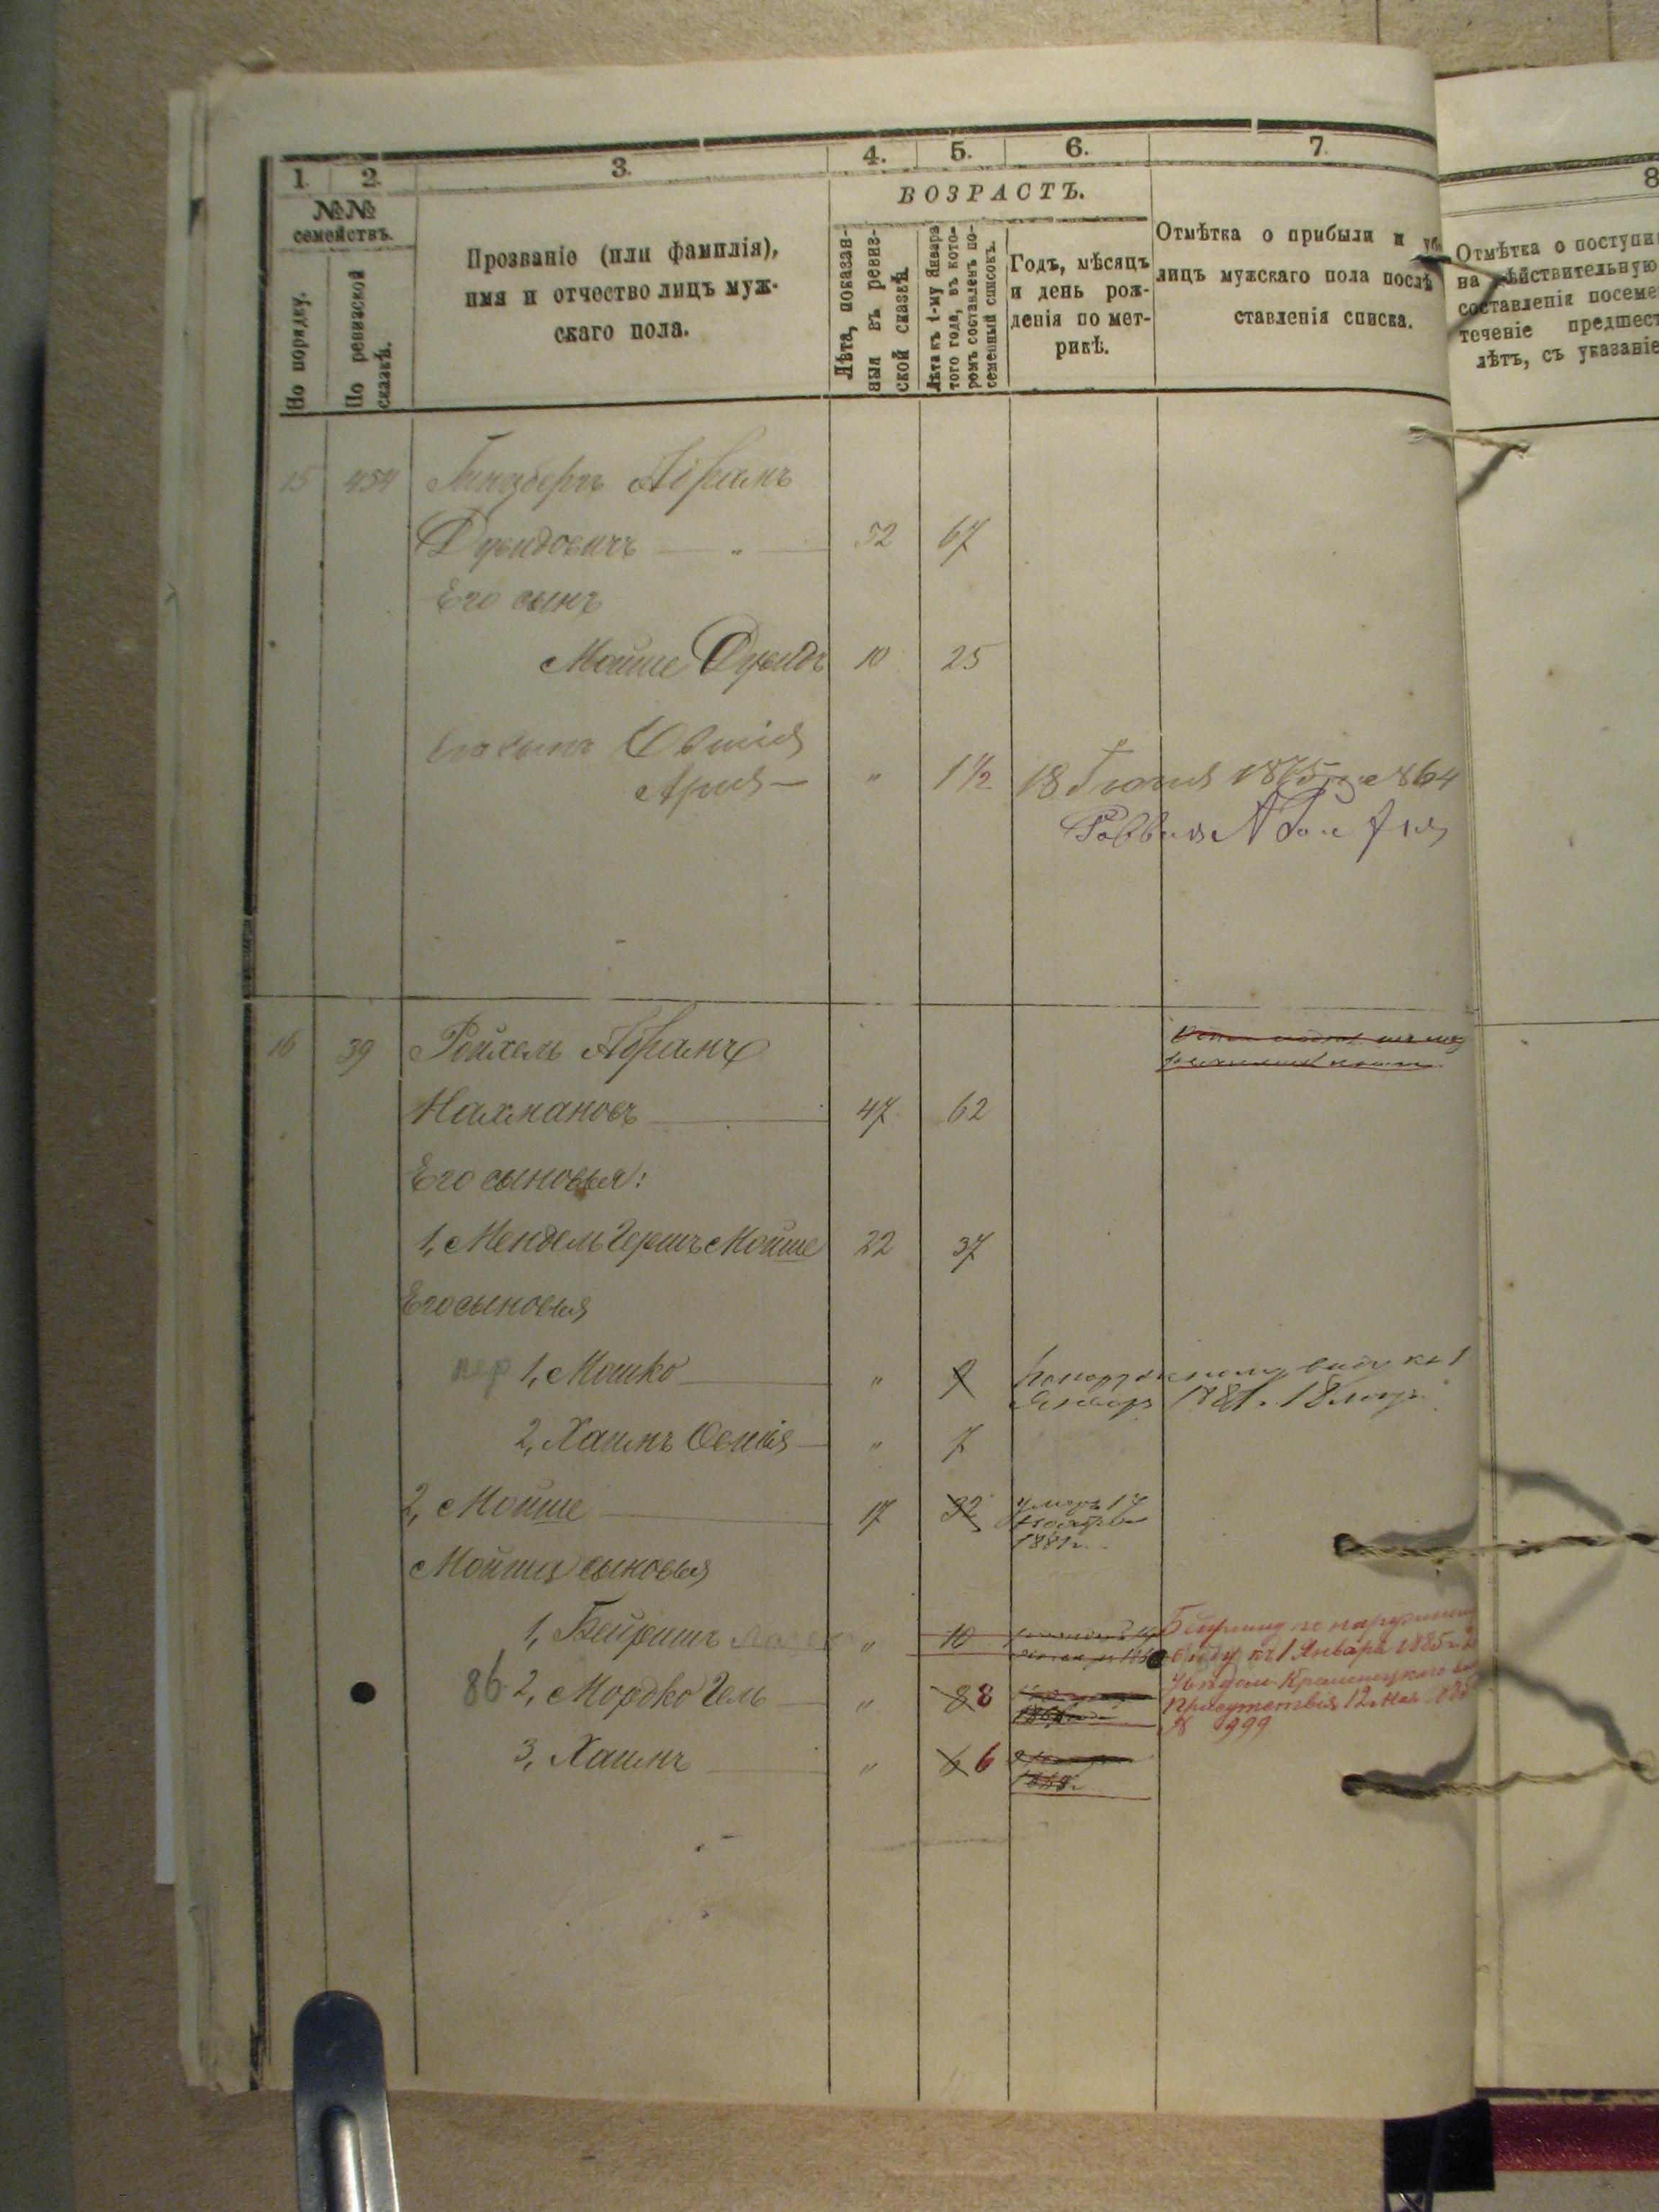 1. 2. 3. 4. 5. 6. 7. 8
№№ семействъ.
По порядку.
По ревизской сказкѣ.
Прозваніе (или фамилія),
имя и отчество лицъ муж-
скаго пола.
ВОЗРАСТЪ.
Лѣта, показан-
ныя въ ревиз-
ской сказкѣ.
Лѣта къ 1-му Января
того года, въ кото-
ромъ составленъ по-
семейный списокъ.
Годъ, мѣсяцъ
и день рож-
денія по мет-
рикѣ.
Отмѣтка о прибыли и
лицъ мужскаго пола послѣ
ставленія списка.
Отмѣтка о поступи
на дѣйствительную
составленія посеме
теченіе предшест
лѣтъ, съ указаніе
15 454 Абрамъ
Дувидовичъ 52 67
Его сынъ
Мойше Дувидъ 10 25
Его сынъ Овшія
Арія " 1 ½ 18 Іюня 1875 № 64
16 39 Ройхель Абрамъ
Нахмановъ 47 62
Его сыновья:
1, Мендель Гершъ Мойше 22 37
Его сыновья
1, Мошко " 9 по наружному виду къ 1
Января 1881. 18 лѣтъ
2, Хаимъ Овшія " 7
2, Мойше 17 32 умеръ 17
Ноября
1881 г.
Мойши сыновья
1, Бейришъ " 10 Бейришу по наружному
виду къ 1 Января 1885 г. 2
86 2, Мордко Гель " 8 8 Кременецкаго
Присутствія 12 Мая 1885
№ 999
3, Хаимъ " 6 6